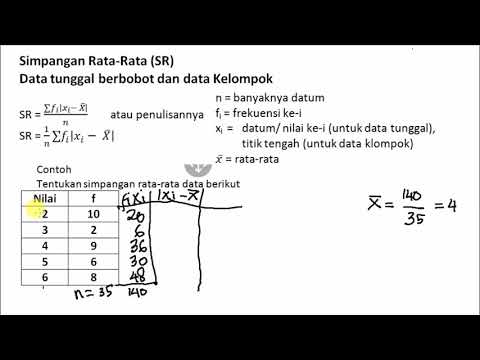 Simpangan Rata-Rata (SR)
Data tunggal berbobot dan data Kelompok
SR = ∑fᵢ|xᵢ− x̄| / n atau penulisannya
SR = 1/n ∑fᵢ|xᵢ − x̄|
n = banyaknya datum
fᵢ = frekuensi ke-i
xᵢ = datum/ nilai ke-i (untuk data tunggal),
titik tengah (untuk data klompok)
x̄ = rata-rata
Contoh
Tentukan simpangan rata-rata data berikut
Nilai f fᵢxᵢ |xᵢ − x̄|
2 10 20
3 2 6
4 9 36
5 6 30
6 8 48
n = 35 140
x̄ = 140/35 = 4